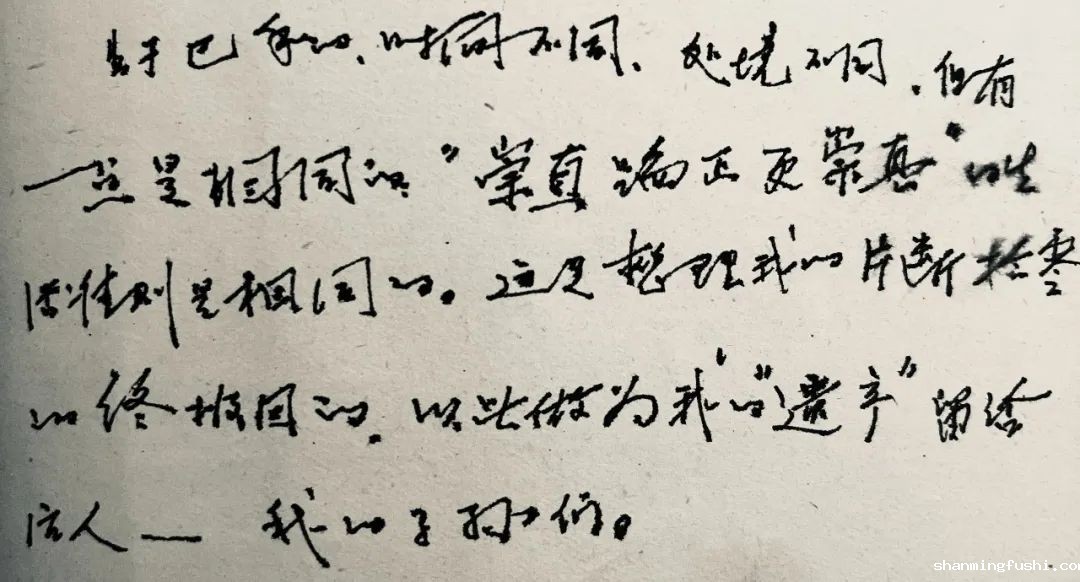 于己，时间不同、处境不同，但有
一点是相同的"崇真端正更崇真"的生
活准则是相同的。这是整理我的片断拾零
的终极目的，以此做为我的"遗产"留给
后人——我的子孙们。
shanmingfushi.com